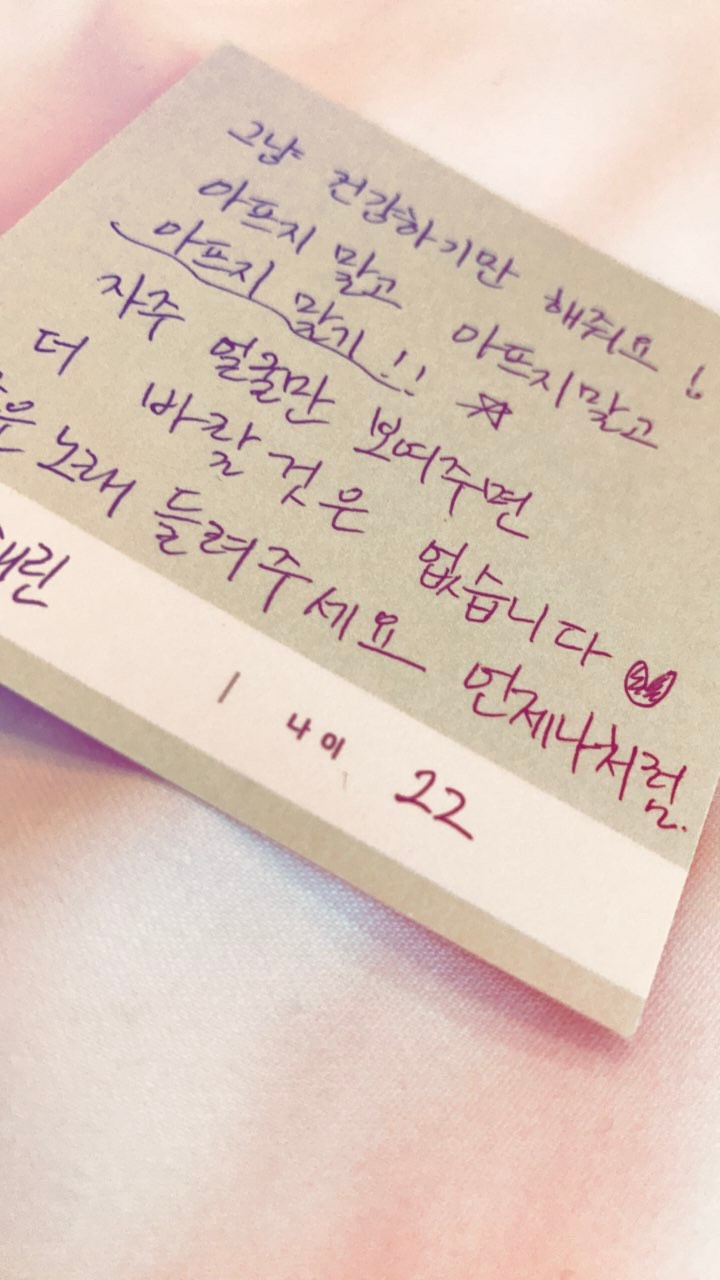 그냥 건강하기만 해줘요!
아프지 말고 아프지말고
아프지 말기!!
자주 얼굴만 보여주면
더 바랄 것은 없습니다
노래 들려주세요 언제나처럼.
린 | 나이 22